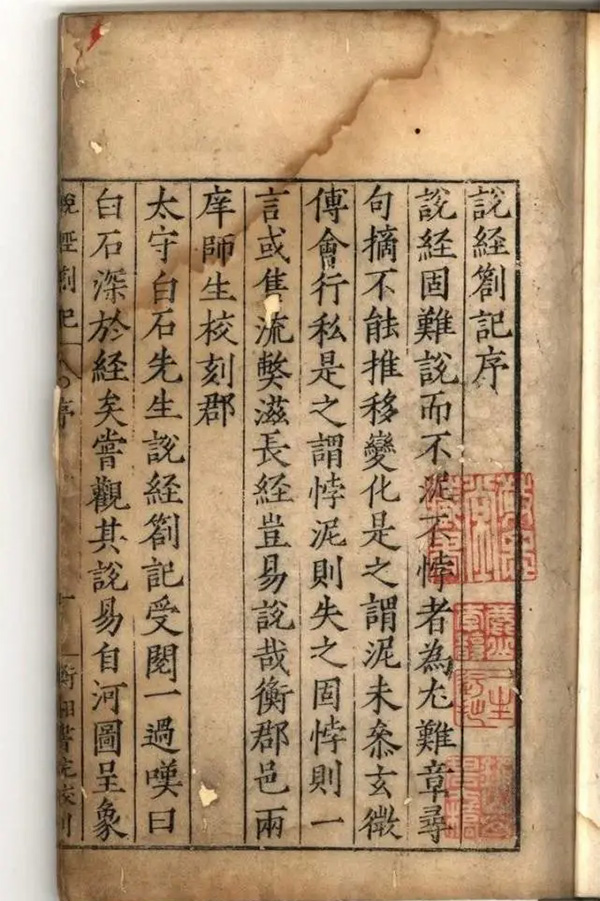 說經劄記序
說經固難說而不泥不悖者為尤難章尋
句摘不能推移變化是之謂泥未叅玄微
傅會行私是之謂悖泥則失之固悖則一
言或售流獘滋長經豈易說哉衡郡邑兩
庠師生校刻郡
太守白石先生說經劄記受閱一過嘆曰
白石深於經矣嘗觀其說易自河圖呈象
說經劄記 序 一